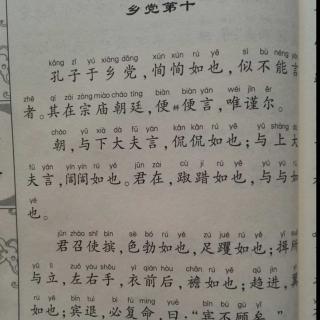 乡党第十
kǒng zǐ yú xiāng dǎng xún xún rú yě sì bù néng yán
孔子于乡党，恂恂如也，似不能言
zhě qí zài zōng miào cháo tíng biàn biàn yán wéi jǐn ěr
者。其在宗庙朝廷，便便言，唯谨尔。
cháo yǔ xià dà fū yán kǎn kǎn rú yě yǔ shàng dà
朝，与下大夫言，侃侃如也；与上大
fū yán yín yín rú yě jūn zài cù jí rú yě yǔ yǔ rú
夫言，訚訚如也。君在，踧踖如也，与与如
yě
也。
jūn zhào shǐ bìn sè bó rú yě zú jué rú yě yī suǒ
君召使摈，色勃如也，足躩如也；揖所
yǔ lì zuǒ yòu shǒu yī qián hòu chān rú yě qū jìn yì
与立，左右手，衣前后，襜如也；趋进，翼
rú yě bīn tuì bì fù mìng yuē bīn bú gù yǐ
如也；宾退，必复命，曰：“宾不顾矣。”